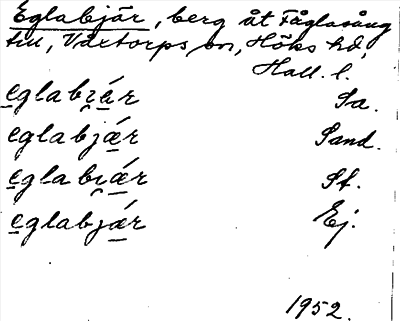 Eglabjär, berg åt Fåglasång
till, Våxtorps sn, Höks hd,
Hall. l.
eglabi̯ä́r Sa.
eglabjǽr Sand.
eglabi̯ǽr St.
eglabjǽr Ej.
1952.